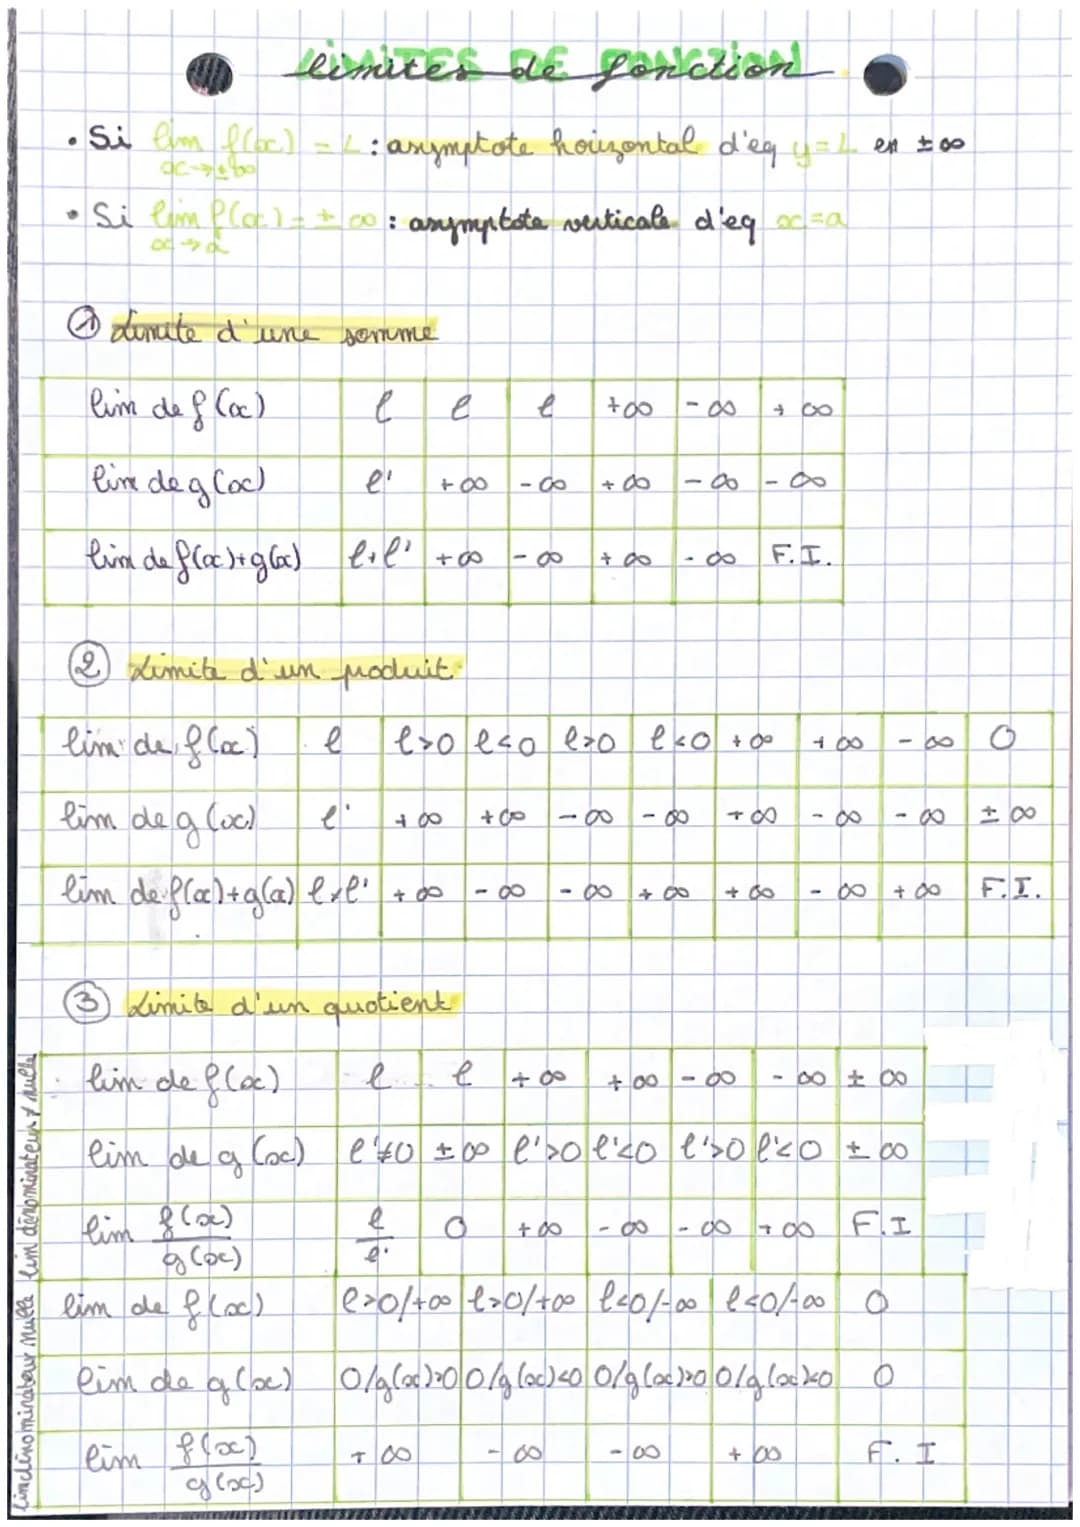 limites de fonction
• Si lim f(x) = L : asymptote horizontal d'eq y = L en ±∞
x→±∞
• Si lim f(x) = ±∞ : asymptote verticale d'eq x = a
x→a
① Limite d'une somme
lim de f(x) l l l +∞ -∞ +∞
lim de g(x) l' +∞ -∞ +∞ -∞ -∞
lim de f(x)+g(x) l+l' +∞ -∞ +∞ -∞ F.I.
② Limite d'un produit
lim de f(x) l l>0 l<0 l>0 l<0 +∞ +∞ -∞ 0
lim de g(x) l' +∞ +∞ -∞ -∞ +∞ -∞ -∞ ±∞
lim de f(x)+g(x) l×l' +∞ -∞ -∞ +∞ +∞ -∞ +∞ F.I.
③ Limite d'un quotient
lim dénominateur ≠ nulle
lim de f(x) l l +∞ +∞ -∞ -∞ ±∞
lim de g(x) l'≠0 ±∞ l'>0 l'<0 l'>0 l'<0 ±∞
lim f(x)/g(x) l/l' 0 +∞ -∞ -∞ +∞ F.I
lim dénominateur nulle
lim de f(x) l>0/+∞ l>0/+∞ l<0/-∞ l<0/-∞ 0
lim de g(x) 0/g(x)>0 0/g(x)<0 0/g(x)>0 0/g(x)<0 0
lim f(x)/g(x) +∞ -∞ -∞ +∞ F.I